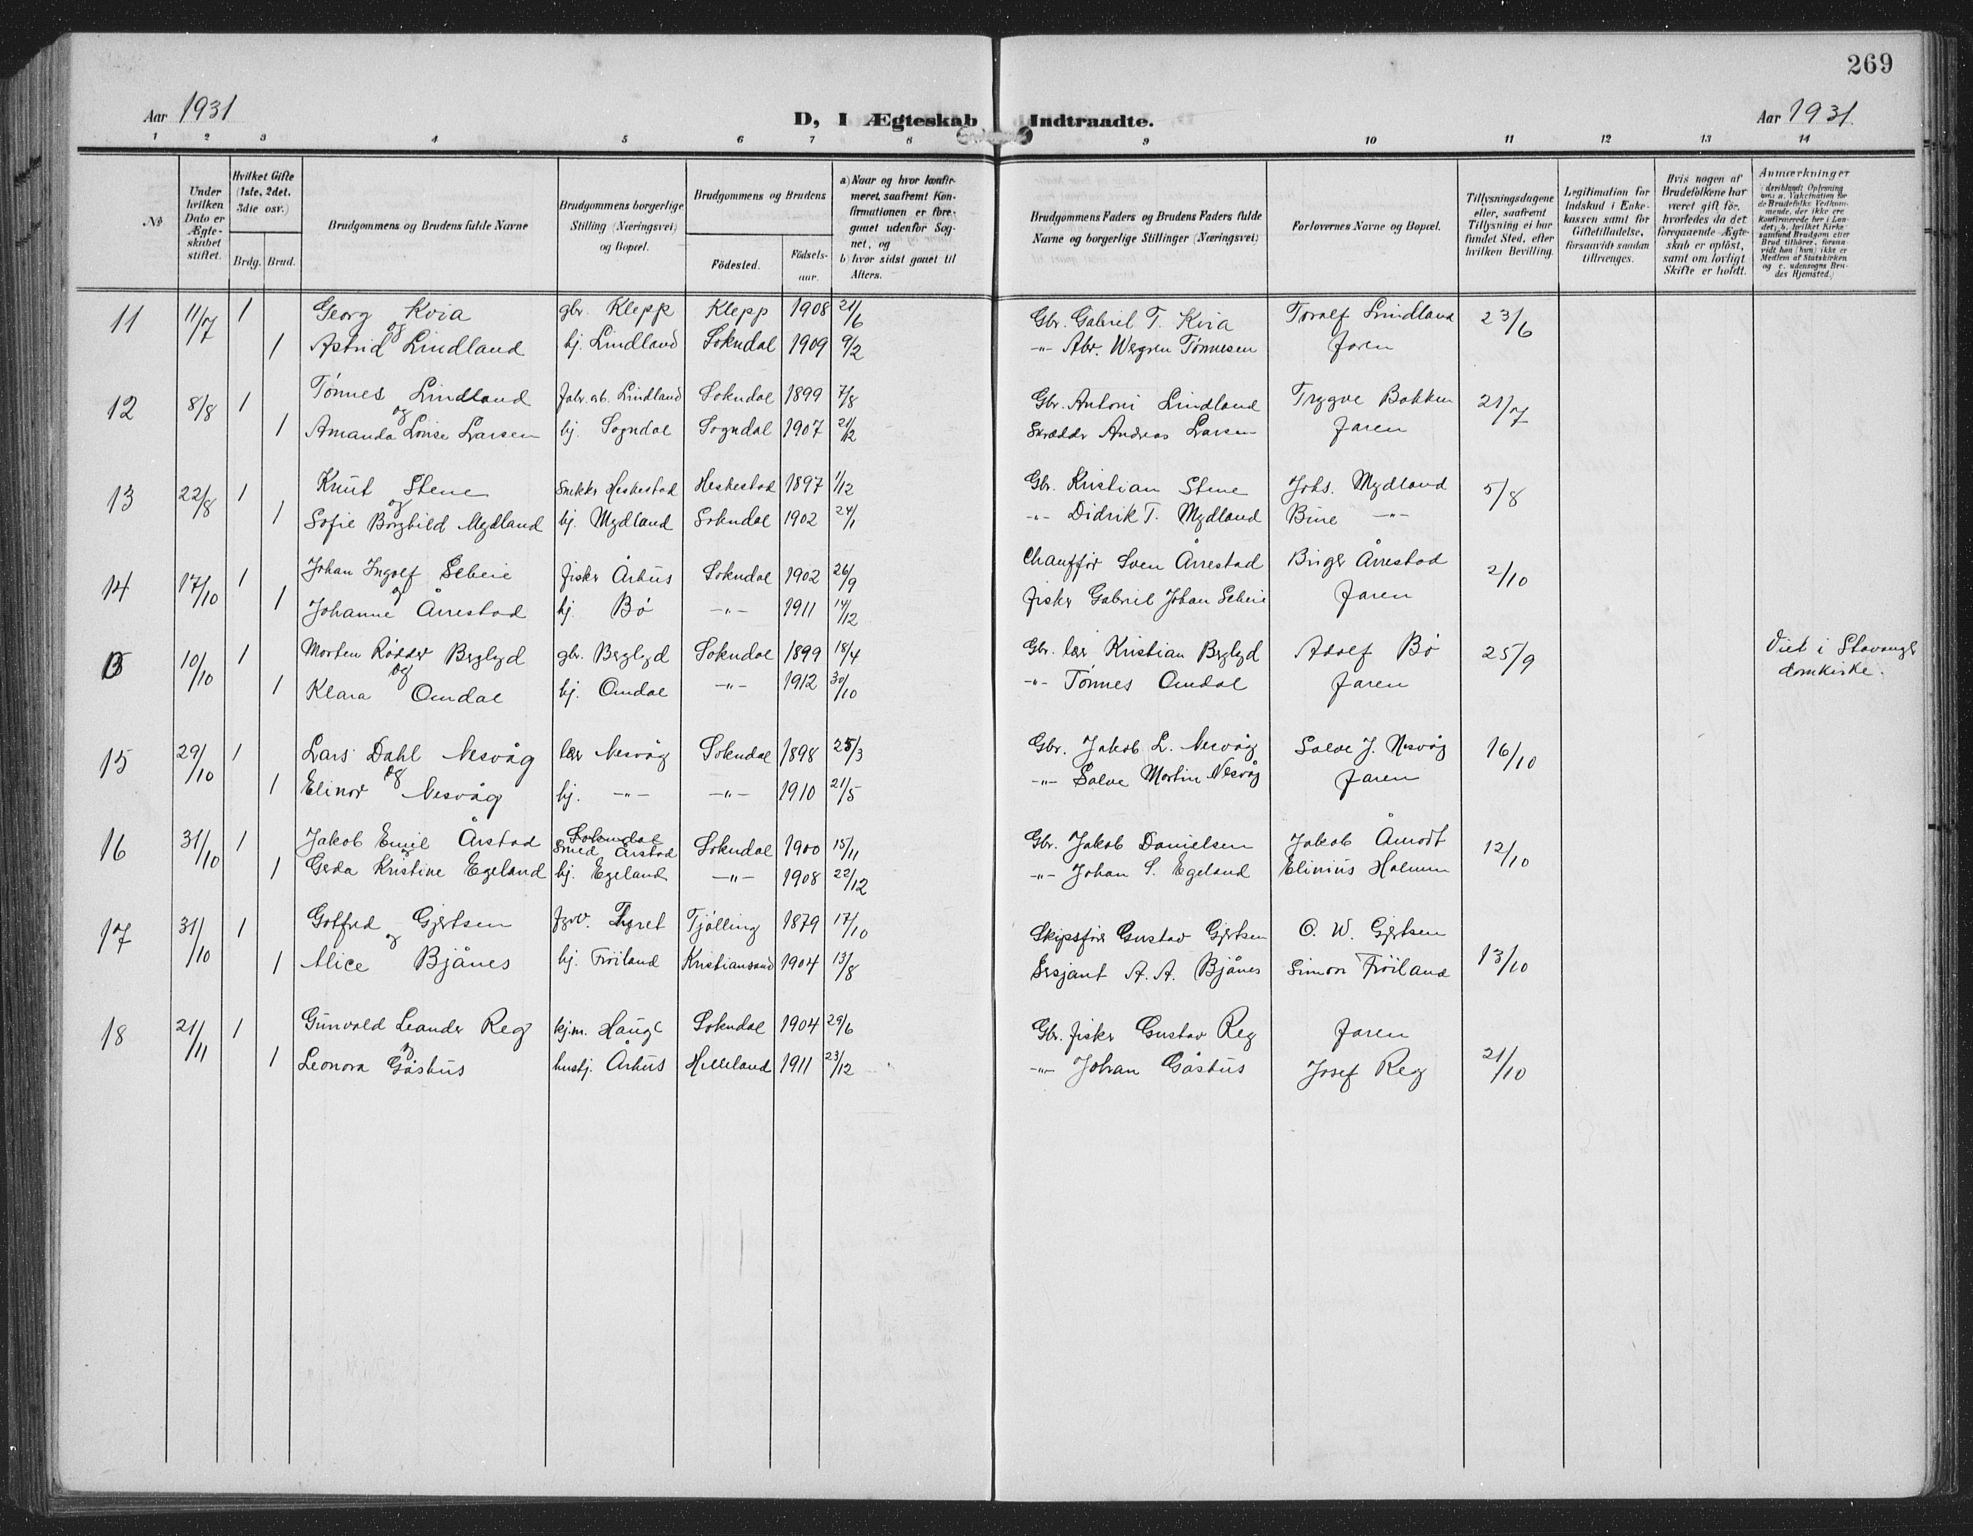 269
Aar 1931
D, I Ægteskab Indtraadte.
Aar 1931.
1 2 3 4 5 6 7 8 9 10 11 12 13 14
№
Under hvilken Dato er Ægteskabet stiftet.
Hvilket Gifte (1ste, 2det, 3die osv.)
Brdg. Brud.
Brudgommens og Brudens fulde Navne
Brudgommens borgerlige Stilling (Næringsvei) og Bopæl.
Brudgommens og Brudens
Födested. Födselsaar.
a) Naar og hvor konfirmeret, saafremt Konfirmationen er foregaaet udenfor Sognet, og
b) hvor sidst gaaet til Alters.
Brudgommens Faders og Brudens Faders fulde Navne og borgerlige Stillinger (Næringsvei)
Forlovernes Navne og Bopæl.
Tillysningsdagene eller, saafremt Tillysning ei har fundet Sted, efter hvilken Bevilling.
Legitimation for Indskud i Enkekassen samt for Giftetilladelse, forsaavidt saadan tiltrænges.
Hvis nogen af Brudefolkene har været gift før, hvorledes da det foregaaende Ægteskab er oplöst, samt om lovligt Skifte er holdt.
Anmærkninger
11 11/7 1 Georg Kvia gbr. Klepp Klepp 1908 21/6 Gbr. Gabriel T. Kvia Toralf Lindland 23/6
og
1 Astrid Lindland hj. Lindland Sokndal 1909 9/2 -"- Abr. Wergren Tønnesen Faren
12 8/8 1 Tönnes Lindland Fabr. arb. Lindland Sokndal 1899 7/8 Gbr. Antoni Lindland Trygve Bakken 21/7
og
1 Amanda Lovise Larsen hj. Sogndal Sogndal 1907 21/12 Skrædder Andreas Larsen Faren
13 22/8 1 Knut Stene Snekker Heskestad Heskestad 1897 1/12 Gbr. Kristian Stene Johs. Mydland 5/8
og
1 Sofie Borghild Mydland hj. Mydland Sokndal 1902 24/1 -"- Didrik T. Mydland Bine -"-
14 17/10 1 Johan Ingolf Seheie fisker Århus Sokndal 1902 26/9 Chauffør Sven Årrestad Birger Årrestad 2/10
og
1 Johanne Årrestad hj. Bö -"- 1911 14/12 fisker Gabriel Johan Seheie Faren
10/10 1 Morten Rödder Berglyd gbr. Berglyd Sokndal 1899 18/4 Gbr. lær Kristian Berglyd Adolf Bö 25/9 Viet i Stavanger
og
1 Klara Omdal hj. Omdal -"- 1912 30/10 -"- Tönnes Omdal Faren domkirke.
15 29/10 1 Lars Dahl Nesvåg lær Nesvåg Sokndal 1898 25/3 Gbr. Jakob L. Nesvåg Salve J. Nesvåg 16/10
og
1 Elinor Nesvåg hj. -"- -"- 1910 21/5 -"- Salve Martin Nesvåg Faren
16 31/10 1 Jakob Emil Årstad Sokndal Smed Årstad Sokndal 1900 15/11 Gbr. Jakob Danielsen Jakob Åmodt 12/10
og
1 Gerda Kristine Egeland hj. Egeland -"- 1908 22/12 -"- Johan S. Egeland Elinius Halmun
17 31/10 1 Gotfred Gjertsen Tjölling 1879 17/10 Skipsfører Gustav Gjertsen O. W. Gjertsen 13/10
og
1 Alice Bjånes hj. Fröiland Kristiansand 1904 13/8 Sersjant A. A. Bjånes Simon Fröiland
18 21/11 1 Gunvald Leander Reg kjm. Hauge Sokndal 1904 29/6 Gbr. fisker Gustav Reg Faren 21/10
og
1 Leonora Gåshus hushj. Århus Helleland 1911 23/12 -"- Johan Gåshus Josef Reg